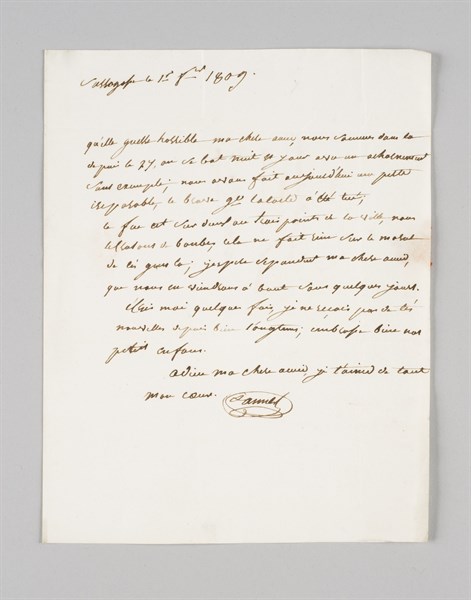 Sarragosse le 1er fer 1809.
qu'elle guelle horrible ma chere amie, nous sommes dans la
depuis le 27, on se bat nuit et jour avec un acharnement
sans exemple; nous avons fait aujourdhui une perte
irreparable, le brave gal Lacoste à été tué,
le feu est sur deux ou trois points de la ville, nous
de bombes, cela ne fait rien sur le moral
de ces ; j'espere cependant ma chere amie,
que nous en viendrons à bout sous quelques jours.
Ecris moi quelque fois, je ne reçois pas de tes
nouvelles depuis bien longtems; embrasse bien nos
petits enfans.
adieu ma chere amie je t'aime de tout
mon cœur. Lannes